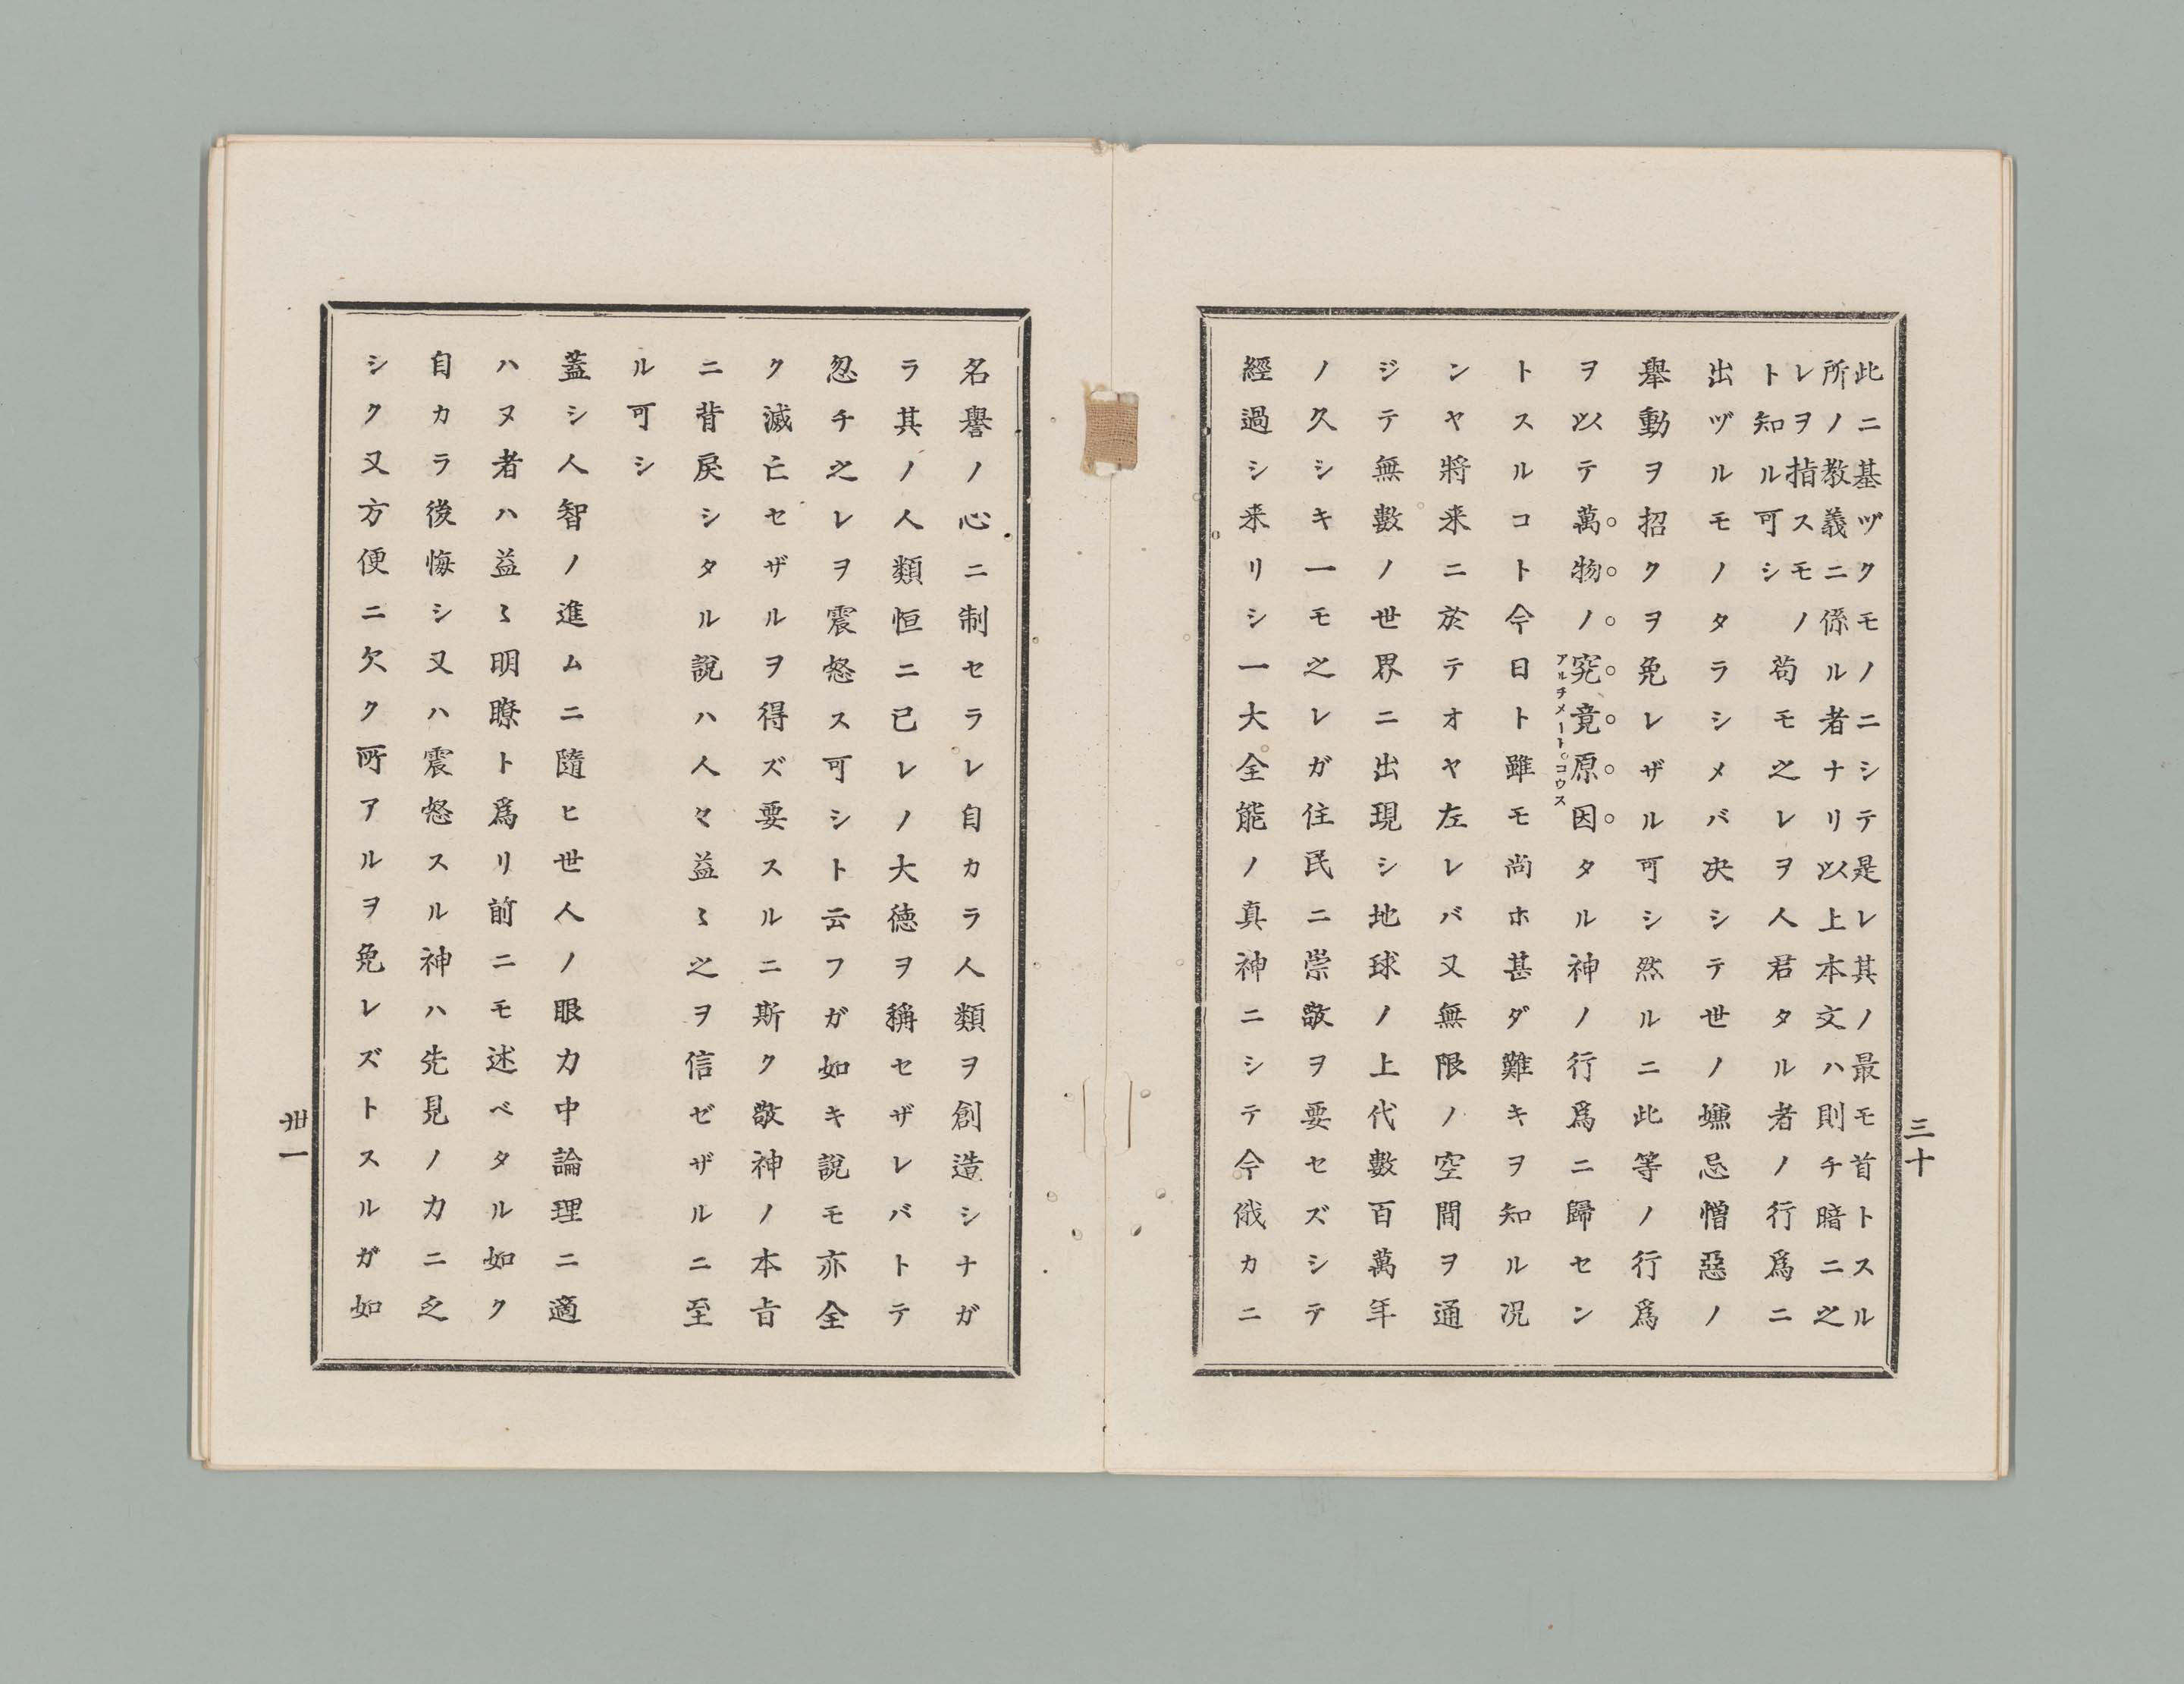 此ニ基ヅクモノニシテ是レ其ノ最モ首トスル
所ノ教義ニ係ル者ナリ以上本文ハ則チ暗ニ之
レヲ指スモノ
ト知ル可シ
苟モ之レヲ人君タル者ノ行爲ニ
出ヅルモノタラシメバ决シテ世ノ嫌忌憎惡ノ
擧動ヲ招クヲ免レザル可シ然ルニ此等ノ行爲
ヲ以テ萬物ノ究竟原因タル神ノ行爲ニ歸セン
アルチメート。コウス
トスルコト今日ト雖モ尚ホ甚ダ難キヲ知ル况
ンヤ將来ニ於テオヤ左レバ又無限ノ空間ヲ通
ジテ無數ノ世界ニ出現シ地球ノ上代數百萬年
ノ久シキ一モ之レガ住民ニ崇敬ヲ要セズシテ
經過シ来リシ一大全能ノ真神ニシテ今俄カニ
三十
名譽ノ心ニ制セラレ自カラ人類ヲ創造シナガ
ラ其ノ人類恒ニ己レノ大德ヲ稱セザレバトテ
忽チ之レヲ震怒ス可シト云フガ如キ說モ亦全
ク滅亡セザルヲ得ズ要スルニ斯ク敬神ノ本旨
ニ背戾シタル說ハ人々益〻之ヲ信ゼザルニ至
ル可シ
蓋シ人智ノ進ムニ隨ヒ世人ノ眼力中論理ニ適
ハヌ者ハ益〻明瞭ト爲リ前ニモ述ベタル如ク
自カラ後悔シ又ハ震怒スル神ハ先見ノ力ニ乏
シク又方便ニ欠ク所アルヲ免レズトスルガ如
丗一